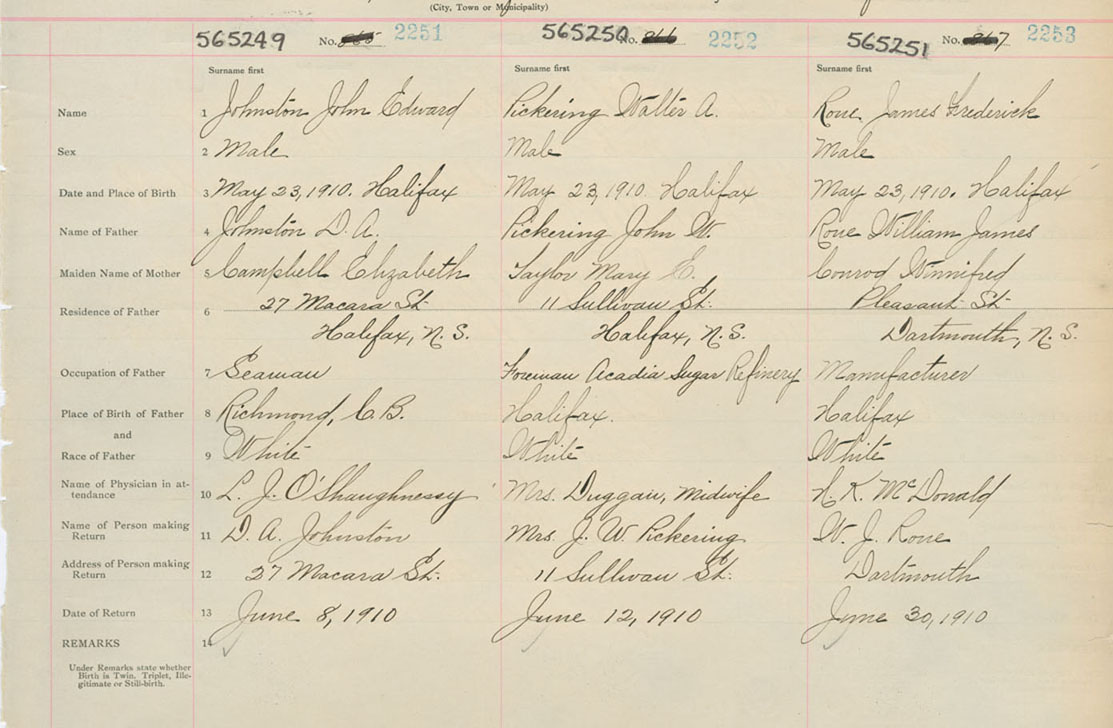 (City, Town or Municipality)
565249 No. 865 2251 565250 No. 866 2252 565251 No. 867 2253
Surname first Surname first Surname first
Name 1 Johnston John Edward Pickering Walter A. Roue James Frederick
Sex 2 Male Male Male
Date and Place of Birth 3 May 23, 1910. Halifax May 23, 1910 Halifax May 23, 1910. Halifax
Name of Father 4 Johnston D. A. Pickering John W. Roue William James
Maiden Name of Mother 5 Campbell Elizabeth Taylor Mary E. Conrod Winnifred
Residence of Father 6 27 Macara St. 11 Sullivan St. Pleasant St.
Halifax, N. S. Halifax, N. S. Dartmouth, N. S.
Occupation of Father 7 Seaman Foreman Acadia Sugar Refinery Manufacturer
Place of Birth of Father 8 Richmond, C. B. Halifax. Halifax
and
Race of Father 9 White White White
Name of Physician in at-
tendance 10 L. J. O'Shaughnessy Mrs. Duggan, Midwife K. McDonald
Name of Person making
Return 11 D. A. Johnston Mrs. J. W. Pickering W. J. Roue
Address of Person making
Return 12 27 Macara St. 11 Sullivan St. Dartmouth
Date of Return 13 June 8, 1910 June 12, 1910 June 30, 1910
REMARKS 14
Under Remarks state whether
Birth is Twin, Triplet, Ille-
gitimate or Still-birth.